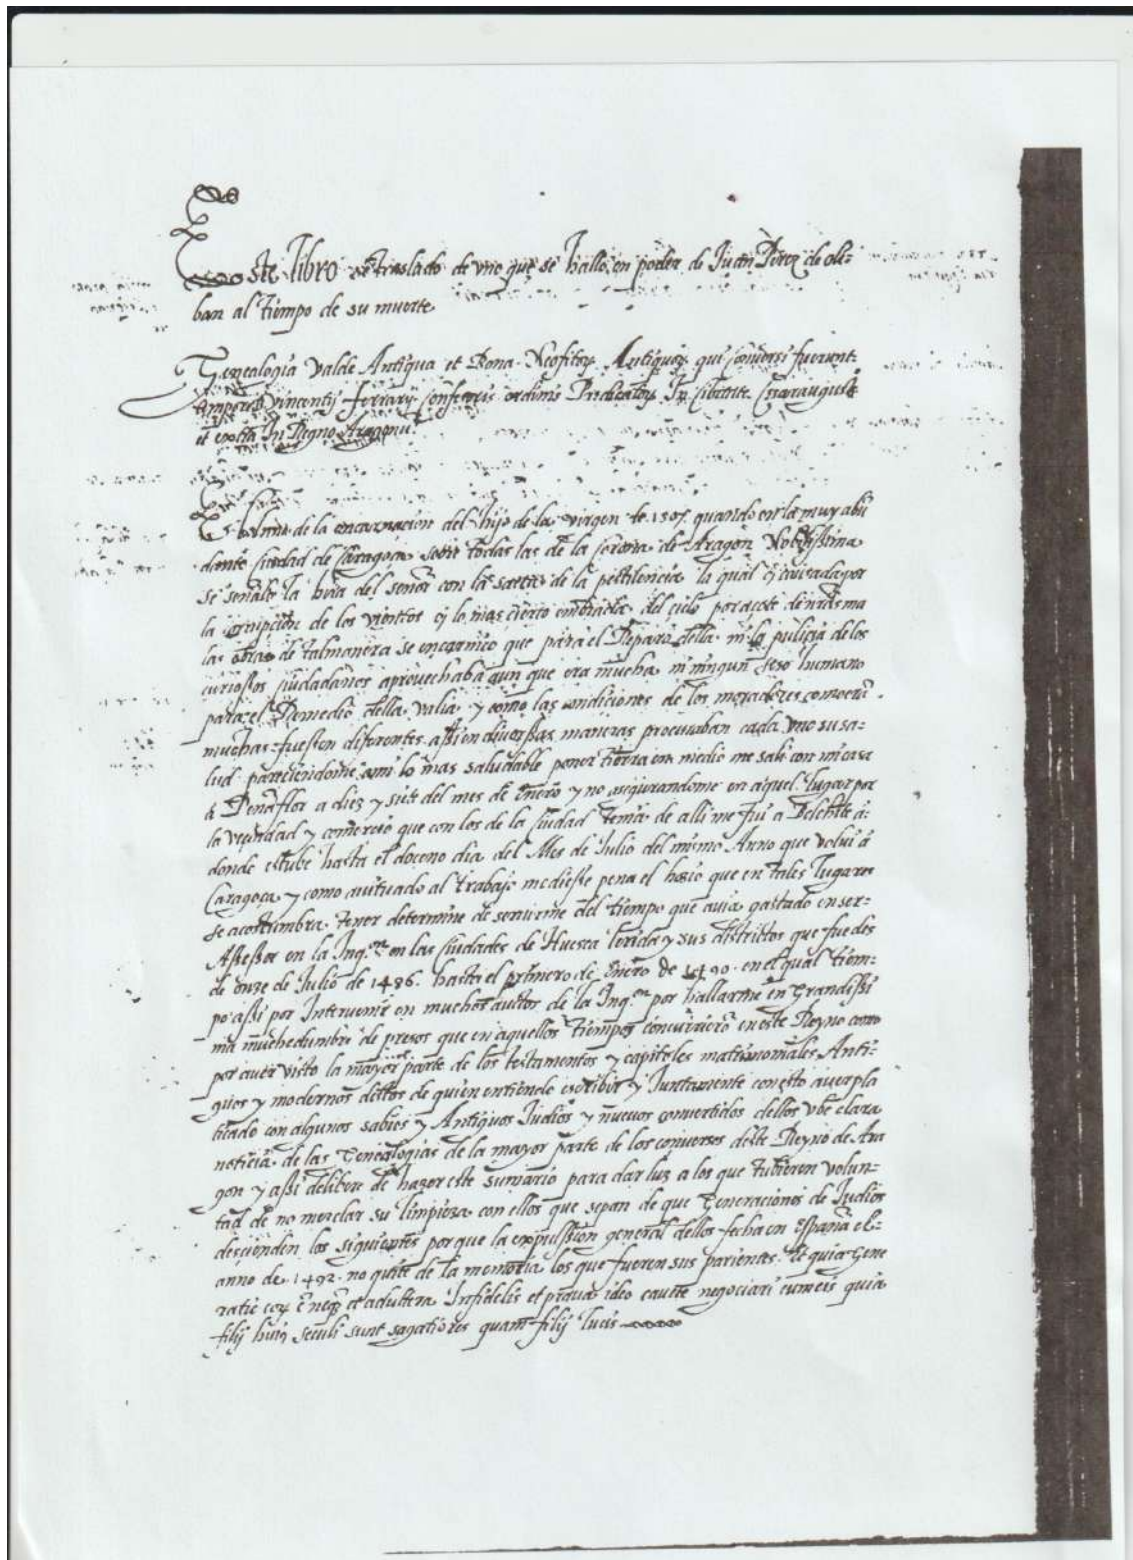 Este libro se traslado de uno que se hallo en poder de Juan Perez de oli-
ban al tiempo de su muerte
Genealogia valde Antiqua et Bona Neofitoꝝ Antiquoꝝ qui conversi fuerunt
tempore Vincentij ferrarij Confesoris ordinis Predicatoꝝ In Civitate Cesarauguste
et extra In Regno Aragonu
anno de la encarnacion del hijo de la virgen de 1507 quando en la muy abū
dante ciudad de Caragoça sobre todas las de la Corona de Aragon Nobilissima
se señalo la hira del señor con la saeta de la pestilencia la qual causada por
la corrupcion de los vientos o lo mas cierto embiada del cielo por açote de nr̄as ma
las obras de tal manera se encarniço que para el Reparo della ni la pulicia de los
curiossos ciudadanos aprovechaba aun que era mucha ni ningun seso humano
para el Remedio della valia y como las condiciones de los moradores como erā
muchas fuessen diferentes assi en diverssas maneras procuraban cada uno su sa-
lud pareciendome a mi lo mas saludable poner tierra en medio me sali con mi casa
a Peñaflor a diez y siete del mes de Enero y no asegurandome en aquel lugar por
la vecindad y comercio que con los de la Ciudad tenia de alli me fui a Belchite a-
donde estube hasta el doceno dia del Mes de Julio del mismo Anno que volvi a
Caragoça y como avituado al trabajo me diesse pena el hocio que en tales lugares
se acostumbra tener determine de servirme del tiempo que avia gastado en ser-
Assessor en la Inq.on en las Ciudades de Huesca lerida y sus districtos que fue des
de onze de Julio de 1486. hasta el primero de Enero de 1490. en el qual tiem-
po assi por Intervenir en muchos auctos de la Inq.on por hallarme en Grandissi
ma muchedumbre de presos que en aquellos tiempos concurrierō en este Reyno como
por aver visto la mayor parte de los testamentos y capitoles matrimoniales Anti-
guos y modernos destos de quien entiendo escribir y Juntamente con esto aver pla
ticado con algunos sabios y Antiguos Judios y nuevos convertidos dellos ube clara
noticia de las Genealogias de la mayor parte de los conversos deste Reyno de Ara
gon y assi delibere de hazer este sumario para dar luz a los que tubieren volun-
tad de no mezclar su limpieza con ellos que sepan de que Generaciones de Judios
descienden los siguientes porque la expulssion general dellos fecha en España el-
anno de 1492. no quite de la memoria los que fueren sus parientes. Et quia Gene
ratio eoꝝ ē neq̄ et adultera Infidelis et prava ideo caute negociari cum eis quia
filij huiꝰ seculi sunt sagatiores quam filij lucis